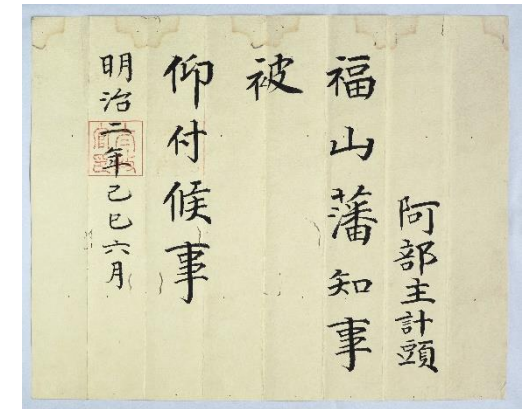 阿部主計頭
福山藩知事
被
仰付候事
明治二年己巳六月